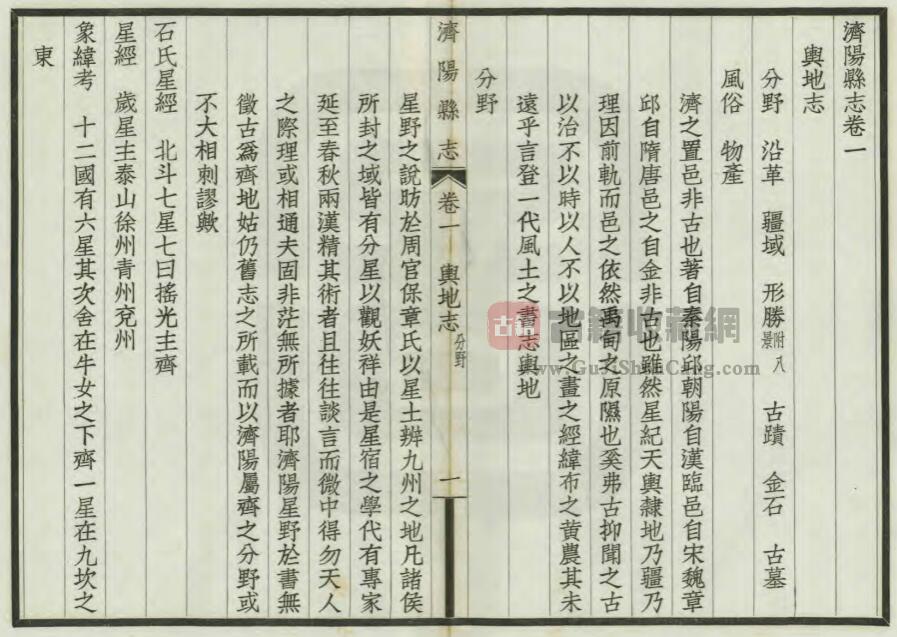 濟陽縣志卷一
輿地志
分野　沿革　疆域　形勝附八景　古蹟　金石　古墓
風俗　物產
濟之置邑非古也著自秦陽邱朝陽自漢臨邑自宋魏章
邱自隋唐邑之自金非古也雖然星紀天輿隸地乃疆乃
理因前軌而邑之依然禹甸之原隰也奚弗古抑聞之古
以治不以時以人不以地區之畫之經緯布之黃農其未
遠乎言登一代風土之書志輿地
分野
濟陽縣志　卷一　輿地志分野　一
星野之說昉於周官保章氏以星土辨九州之地凡諸侯
所封之域皆有分星以觀妖祥由是星宿之學代有專家
延至春秋兩漢精其術者且往往談言而微中得勿天人
之際理或相通夫固非茫無所據者耶濟陽星野於書無
徵古爲齊地姑仍舊志之所載而以濟陽屬齊之分野或
不大相刺謬歟
石氏星經　北斗七星七曰搖光主齊
星經　歲星主泰山徐州青州兗州
象緯考　十二國有六星其次舍在牛女之下齊一星在九坎之
東
古籍收藏網
www.GuJiShuCang.com